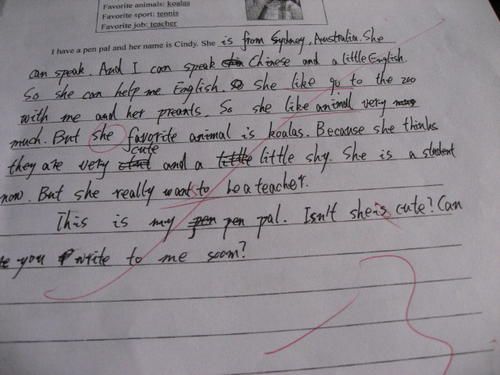 Favorite animals: koalas
Favorite sport: tennis
Favorite job: teacher
I have a pen pal and her name is Cindy. She is from Sydney, Australia. She
can speak. And I can speak Chinese and a little English.
So she can help me English. So she like go to the zoo
with me and her preants. So she like animal very
much. But she favorite animal is koalas. Because she thinks
they are very cute and a little shy. She is a student
now. But she really want to be a teacher.
This is my pen pal. Isn't she is cute? Can
you write to me soom?